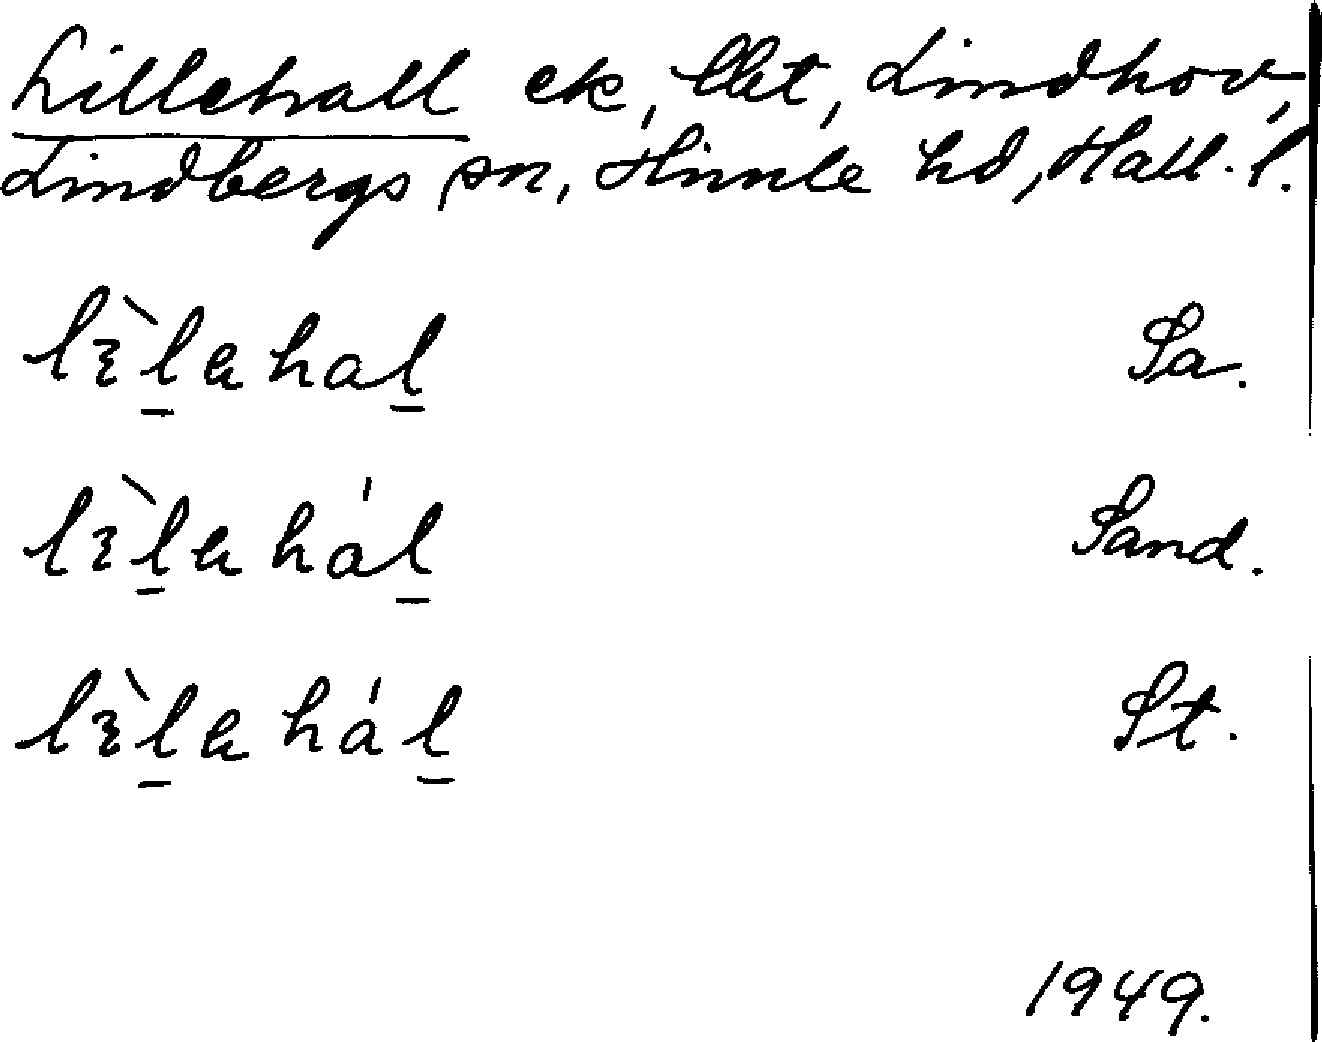 Lillehall ek, lht, Lindhov,
Lindbergs sn, Himle hd, Hall. l.
lɩ̀l̠ɐhal̠ Sa.
lɩ̀l̠ɐhál̠ Sand.
lɩ̀l̠ɐhál̠ St.
1949.